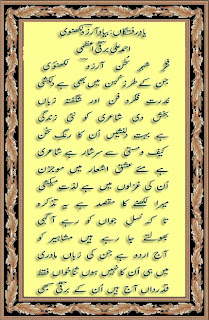 یادِ رفتگاں: بیادِ آرزو لکھنوی
احمد علی برقی اعظمی
فخرِ شہرِ سخن آرزو لکھنوی
جن کے طرزِ سخن میں بھی ہے دلکشی
ندرتِ فکر و فن اور شگفتہ زباں
بخش دی شاعری کو نئی زندگی
ہے بہت دلنشیں اُن کا رنگِ سخن
کیف و مستی سے سرشار ہے شاعری
ہے مئے عشق اشعار میں موجزن
اُن کی غزلوں میں ہے لذتِ میکشی
میرے لکھنے کا مقصد ہے یہ تذکرہ
تا کہ نسلِ جواں کو رہے آگہی
بھولتے جا رہے ہیں مشاہیر کو
آج اردو ہے جن کی زباں مادری
میں ہی اُن کا نہیں ہوں ثناخواں فقط
قدرداں آج ہیں اُن کے برقی سبھی